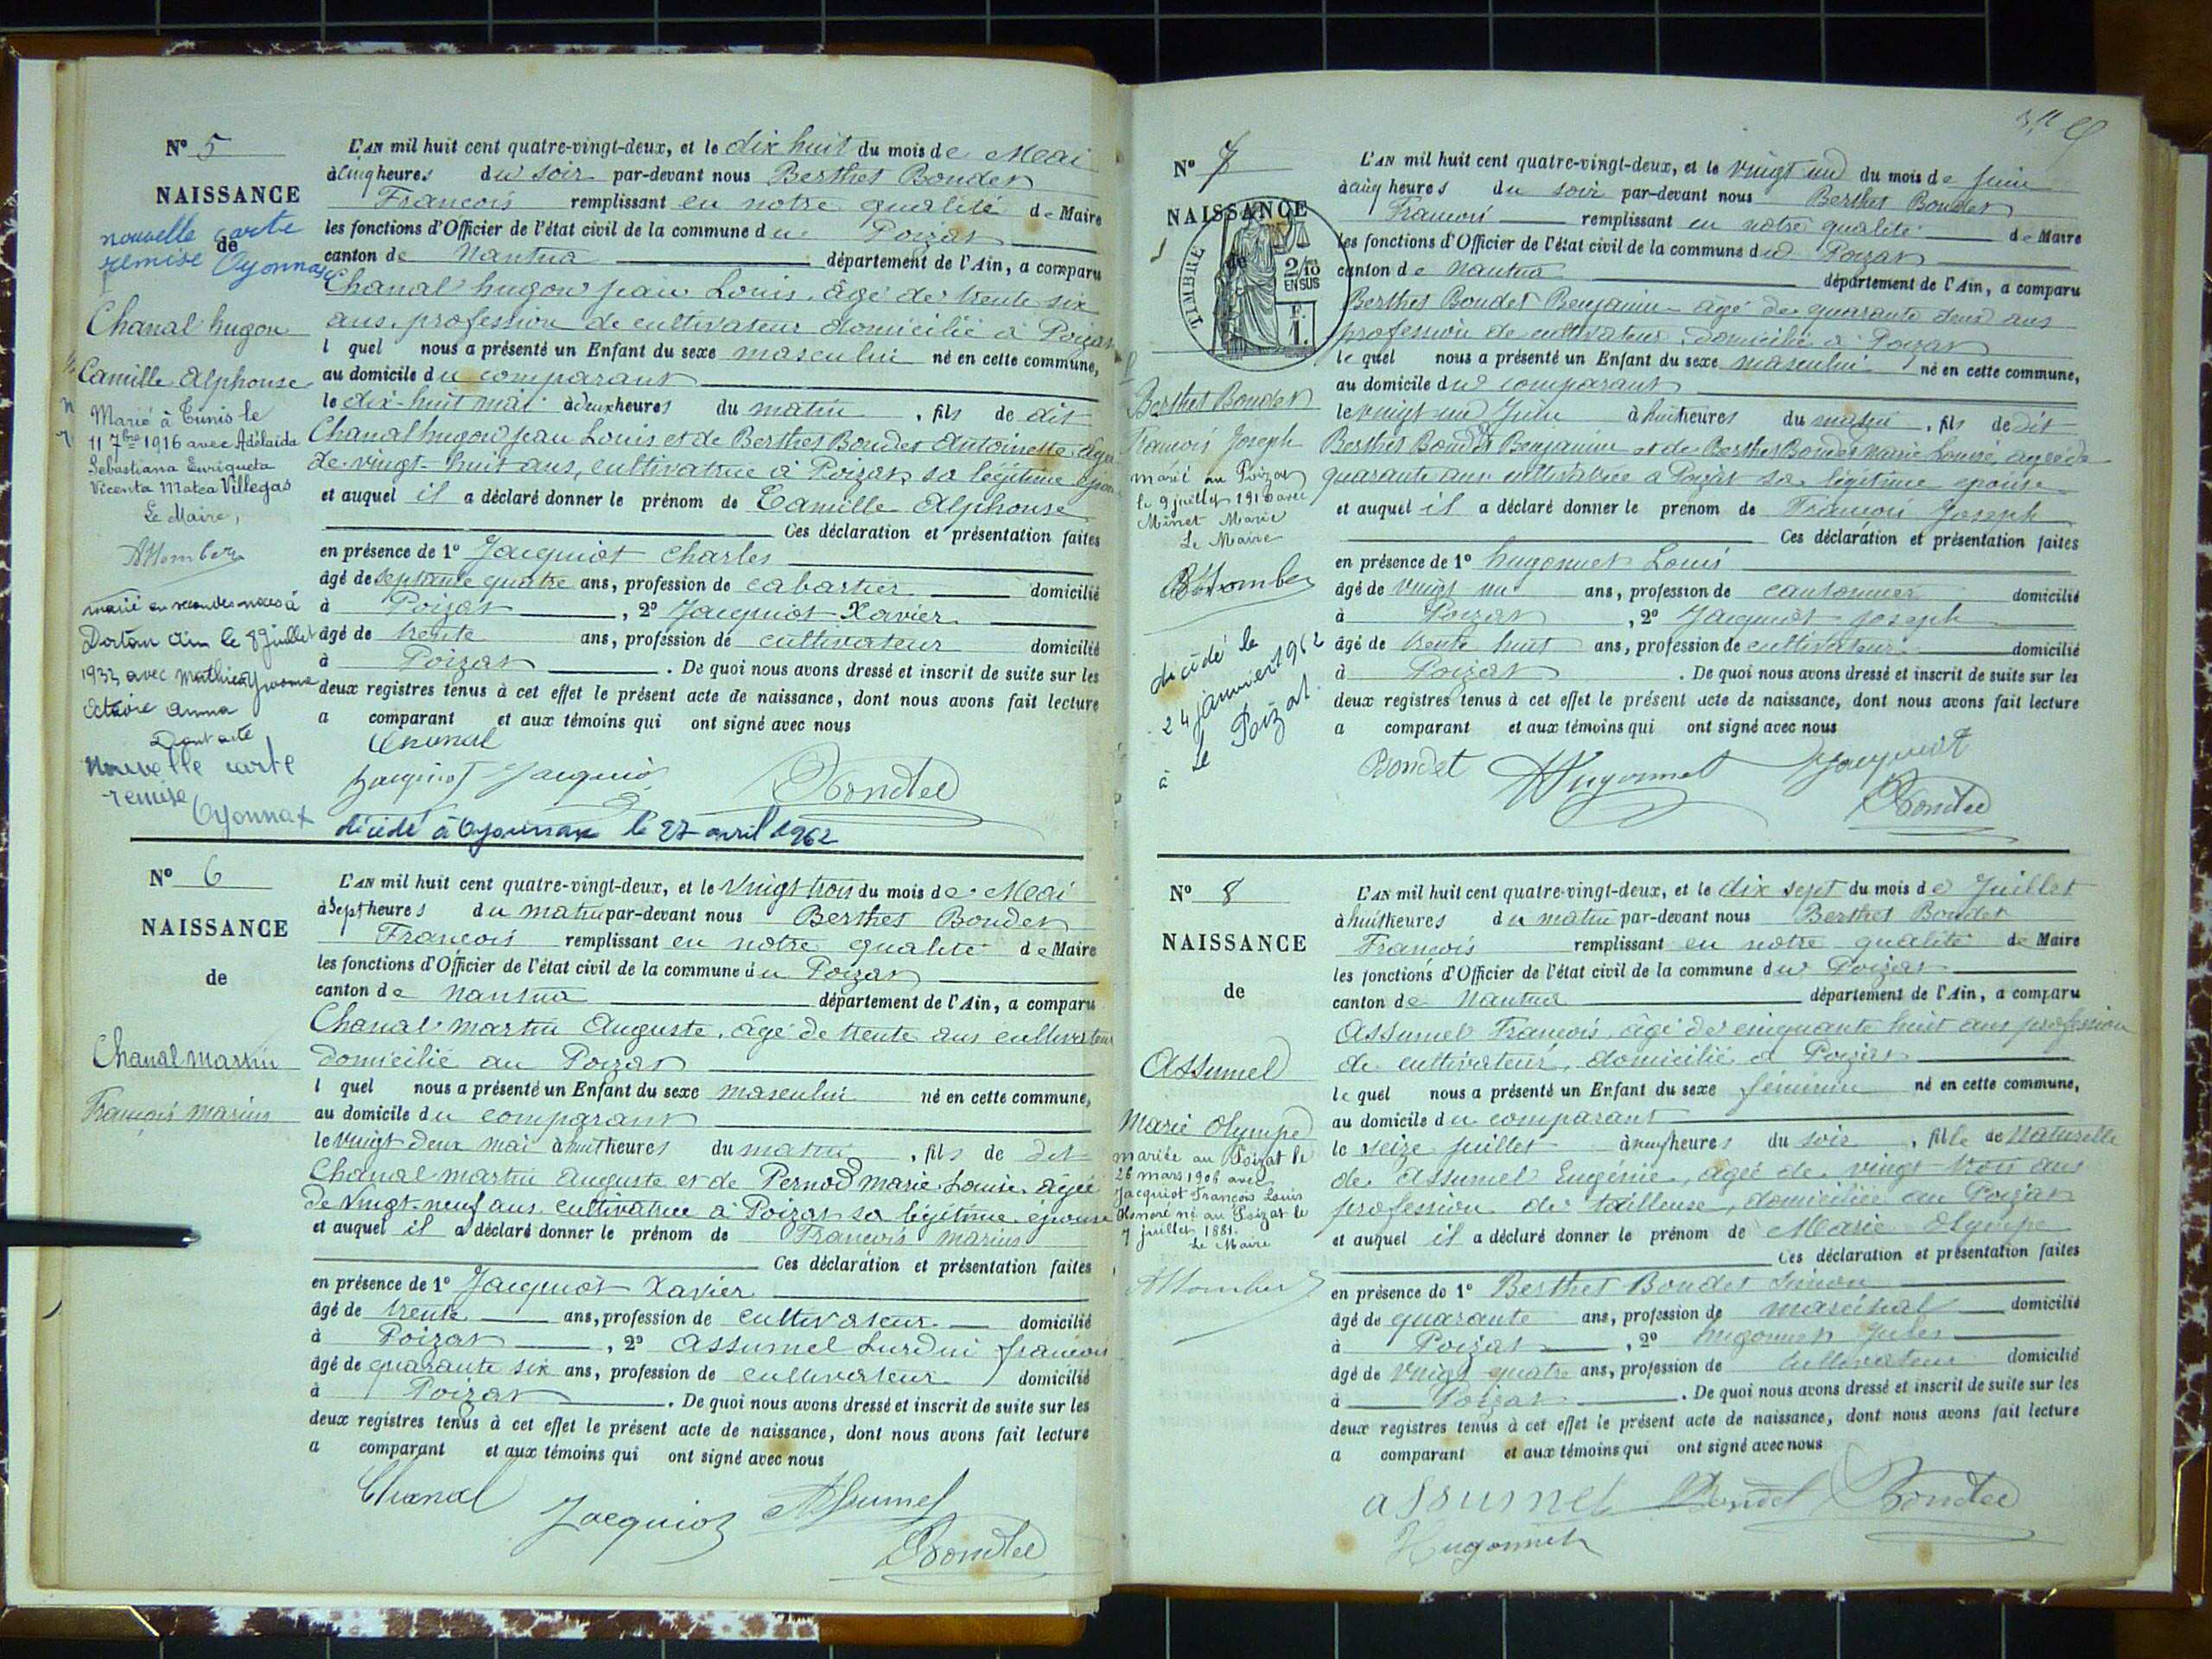 N° 5
NAISSANCE
de
nouvelle carte
remise Oyonnax
Chanal hugon
Camille Alphonse
Marié à Tunis le
11 7bre 1916 avec Adélaida
Sebastiana Enriqueta
Vicenta Matea Villegas
Le Maire,
marié en secondes noces à
Dortan Ain le 8 juillet
1933 avec Mathieu Yvonne
Octavie Anna
Dont acte
Nouvelle carte
remise
Oyonnax
L'AN mil huit cent quatre-vingt-deux, et le dix huit du mois de Mai
à cinq heures du soir par-devant nous Berthet Bondet
François remplissant en notre qualité de Maire
les fonctions d'Officier de l'état civil de la commune du Poizat
canton de Nantua département de l'Ain, a comparu
Chanal hugon jean Louis, âgé de trente six
ans, profession de cultivateur domicilié à Poizat
l quel nous a présenté un Enfant du sexe masculin né en cette commune,
au domicile du comparant
le dix-huit mai à deux heures du matin, fils de dit
Chanal hugon jean Louis et de Berthet Bondet Antoinette âgée
de vingt-huit ans, cultivatrice à Poizat, sa légitime épouse
et auquel il a déclaré donner le prénom de Camille Alphonse
Ces déclaration et présentation faites
en présence de 1° Jacquiot Charles
âgé de septante quatre ans, profession de cabartier domicilié
à Poizat, 2° Jacquiot Xavier
âgé de trente ans, profession de cultivateur domicilié
à Poizat. De quoi nous avons dressé et inscrit de suite sur les
deux registres tenus à cet effet le présent acte de naissance, dont nous avons fait lecture
a comparant et aux témoins qui ont signé avec nous
Chanal
Jacquiot Jacquio Bondet
décédé à Oyonnax le 27 avril 1962
N° 6
NAISSANCE
de
Chanal martin
François marius
L'AN mil huit cent quatre-vingt-deux, et le vingt trois du mois de Mai
à sept heures du matin par-devant nous Berthet Bondet
François remplissant en notre qualité de Maire
les fonctions d'Officier de l'état civil de la commune du Poizat
canton de Nantua département de l'Ain, a comparu
Chanal martin Auguste, âgé de trente ans cultivateur
domicilié au Poizat
l quel nous a présenté un Enfant du sexe masculin né en cette commune,
au domicile du comparant
le vingt deux mai à huit heures du matin, fils de dit
Chanal martin Auguste et de Pernod marie Louise, âgée
de vingt-neuf ans cultivatrice à Poizat sa légitime épouse
et auquel il a déclaré donner le prénom de François marius
Ces déclaration et présentation faites
en présence de 1° Jacquiot Xavier
âgé de trente ans, profession de cultivateur domicilié
à Poizat, 2° Assumel Lurdin françois
âgé de quarante six ans, profession de cultivateur domicilié
à Poizat. De quoi nous avons dressé et inscrit de suite sur les
deux registres tenus à cet effet le présent acte de naissance, dont nous avons fait lecture
a comparant et aux témoins qui ont signé avec nous
Chanal Jacquiot Assumel
Bondet
N° 7
NAISSANCE
de
TIMBRE
2/10
EN SUS
F.
1.
Berthet Bondet
François Joseph
marié au Poizat
le 9 juillet 1910 avec
Minet Marie
Le Maire
décédé le
24 janvier 1962
à Le Poizat
L'AN mil huit cent quatre-vingt-deux, et le vingt un du mois de juin
à cinq heures du soir par-devant nous Berthet Bondet
François remplissant en notre qualité de Maire
les fonctions d'Officier de l'état civil de la commune du Poizat
canton de Nantua département de l'Ain, a comparu
Berthet Bondet Benjamin âgé de quarante deux ans
profession de cultivateur, domicilié à Poizat
le quel nous a présenté un Enfant du sexe masculin né en cette commune,
au domicile du comparant
le vingt un Juin à huit heures du matin, fils de dit
Berthet Bondet Benjamin et de Berthet Bondet Marie Louise, agée de
quarante ans cultivatrice a Poizat sa légitime épouse
et auquel il a déclaré donner le prénom de François Joseph
Ces déclaration et présentation faites
en présence de 1° hugonnet Louis
âgé de vingt un ans, profession de cantonnier domicilié
à Poizat, 2° Jacquiot joseph
âgé de trente huit ans, profession de cultivateur domicilié
à Poizat. De quoi nous avons dressé et inscrit de suite sur les
deux registres tenus à cet effet le présent acte de naissance, dont nous avons fait lecture
a comparant et aux témoins qui ont signé avec nous
Bondet Hugonnet Jacquiot
Bondet
N° 8
NAISSANCE
de
Assumel
Marie Olympe
mariée au Poizat le
26 mars 1906 avec
Jacquiot François Louis
Honoré né au Poizat le
7 juillet 1881.
Le Maire
L'AN mil huit cent quatre-vingt-deux, et le dix sept du mois de Juillet
à huit heures du matin par-devant nous Berthet Bondet
François remplissant en notre qualité de Maire
les fonctions d'Officier de l'état civil de la commune du Poizat
canton de Nantua département de l'Ain, a comparu
Assumel François, âgé de cinquante huit ans profession
de cultivateur, domicilié a Poizat
le quel nous a présenté un Enfant du sexe féminin né en cette commune,
au domicile du comparant
le seize juillet à neuf heures du soir, fille de Naturelle
de Assumel Eugénie, agée de vingt trois ans
profession de tailleuse, domiciliée au Poizat
et auquel il a déclaré donner le prénom de Marie Olympe
Ces déclaration et présentation faites
en présence de 1° Berthet Bondet Simon
âgé de quarante ans, profession de maréchal domicilié
à Poizat, 2° hugonnet Jules
âgé de vingt quatre ans, profession de cultivateur domicilié
à Poizat. De quoi nous avons dressé et inscrit de suite sur les
deux registres tenus à cet effet le présent acte de naissance, dont nous avons fait lecture
a comparant et aux témoins qui ont signé avec nous
assumel Bondet Bondet
Hugonnet